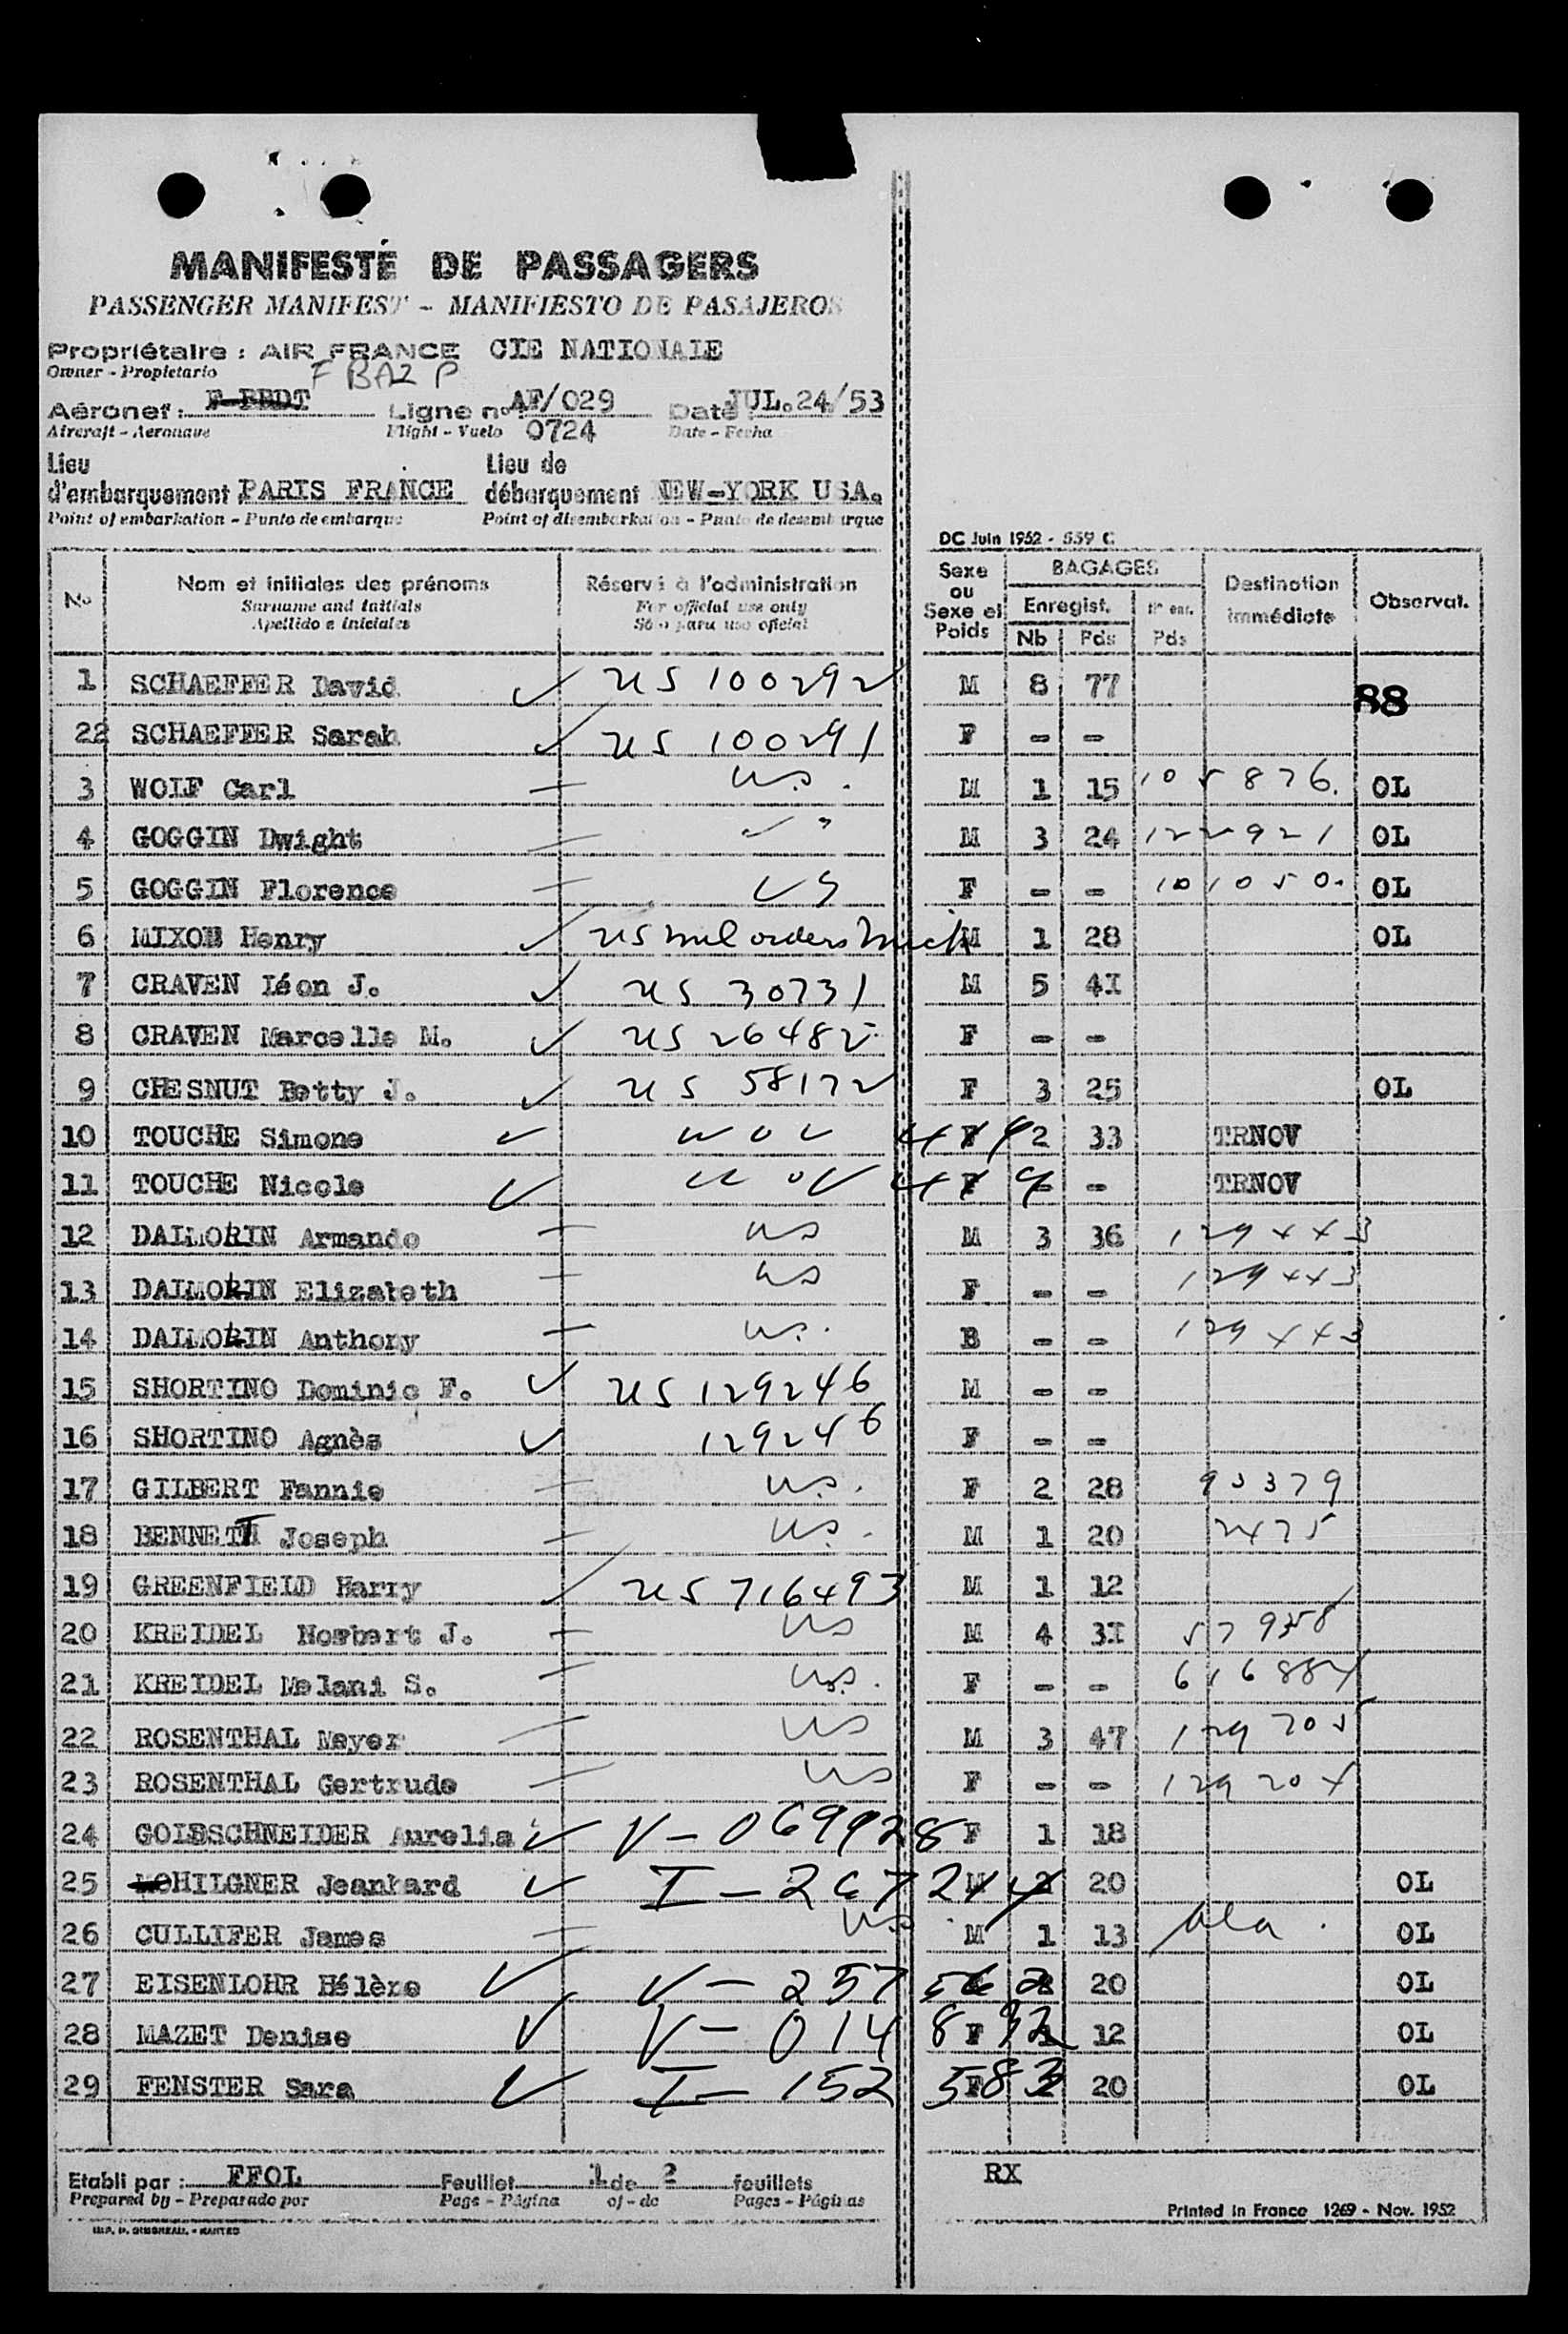 MANIFESTE DE PASSAGERS
PASSENGER MANIFEST - MANIFIESTO DE PASAJEROS
Propriétaire : AIR FRANCE CIE NATIONALE
Owner - Propietario
F BAZ P
Aéronef : F-BBDT Ligne n° AF/029 Date JUL.24/53
Aircraft - Aeronave Flight - Vuelo 0724 Date - Fecha
Lieu d'embarquement PARIS FRANCE Lieu de débarquement NEW-YORK USA.
Point of embarkation - Punto de embarque Point of disembarkation - Punto de desembarque
DC Juin 1952 - 559 C
N° Nom et initiales des prénoms Réservé à l'administration Sexe ou Sexe et Poids BAGAGES Enregist. Nb Pds N° enr. Pds Destination immédiate Observat.
Surname and initials For official use only
Apellido e iniciales Sólo para uso oficial
1 SCHAEFFER David ✓ US 100292 M 8 77 88
22 SCHAEFFER Sarah ✓ US 100291 F - -
3 WOLF Carl - U.S. M 1 15 105876. OL
4 GOGGIN Dwight - " M 3 24 122921 OL
5 GOGGIN Florence - US F - - 101050. OL
6 MIXON Henry ✓ US mil orders M 1 28 OL
7 CRAVEN Léon J. ✓ US 30731 M 5 4I
8 CRAVEN Marcelle M. ✓ US 26482 F - -
9 CHESNUT Betty J. ✓ US 58172 F 3 25 OL
10 TOUCHE Simone ✓ F 2 33 TRNOV
11 TOUCHE Nicole ✓ F - - TRNOV
12 DALMORIN Armando - US M 3 36 129443
13 DALMORIN Elizabeth - US F - - 129443
14 DALMORIN Anthony - U.S. B - - 129443
15 SHORTINO Dominic F. ✓ US 129246 M - -
16 SHORTINO Agnès ✓ 129246 F - -
17 GILBERT Fannie - U.S. F 2 28 93379
18 BENNETT Joseph - U.S. M 1 20 2475
19 GREENFIELD Harry ✓ US 716493 M 1 12
20 KREIDEL Norbert J. - US M 4 3I 57958
21 KREIDEL Melani S. - U.S. F - - 616884
22 ROSENTHAL Meyer - US M 3 47 129705
23 ROSENTHAL Gertrude - US F - - 129204
24 GOLDSCHNEIDER Aurelia ✓ V-069928 F 1 18
25 HILGNER Jeanhard ✓ I-267244 M 2 20 OL
26 CULLIFER James - U.S. M 1 13 OL
27 EISENLOHR Hélène ✓ V-257562 20 OL
28 MAZET Denise ✓ V-014892 F 1 12 OL
29 FENSTER Sara ✓ I-152583 F 20 OL
Etabli par : FFOL Feuillet 1 de 2 feuillets RX
Prepared by - Preparado por Page - Página of - de Pages - Páginas
Printed in France 1269 - Nov. 1952